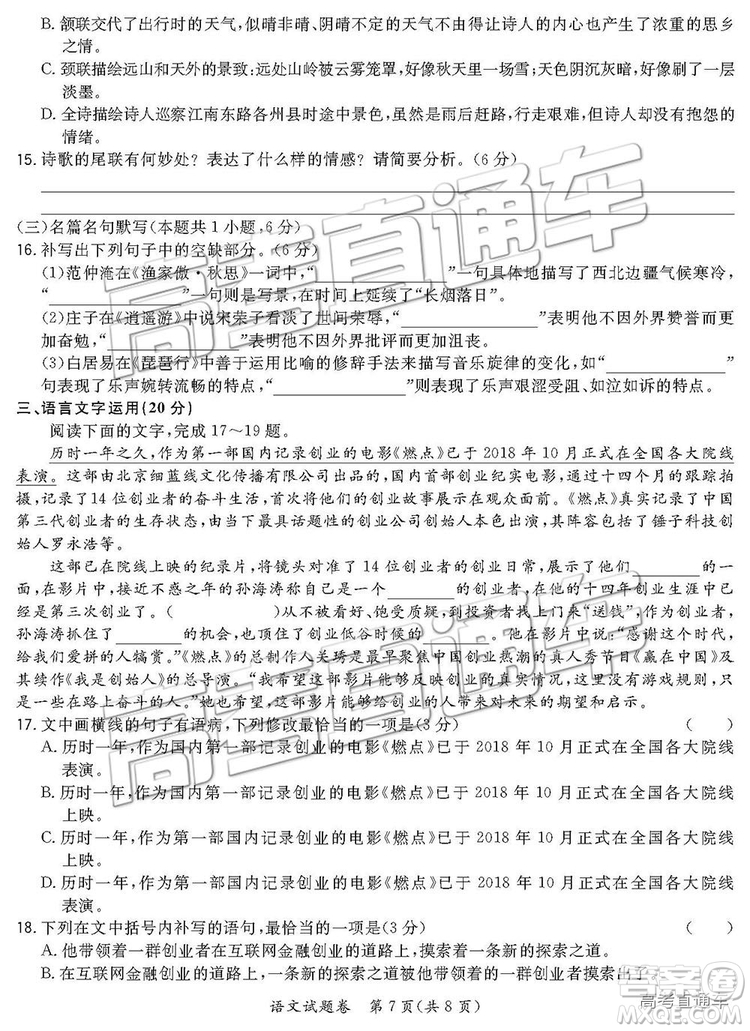 B. 颔联交代了出行时的天气,似晴非晴、阴晴不定的天气不由让诗人的内心也产生了浓重的思乡
之情。
C. 颈联描绘远山和天外的景致:远处山岭被云雾笼罩,好像秋天里一场雪;天色阴沉灰暗,好像一层
淡墨。
D. 全诗描绘诗人巡察江南东路各州县时途中景色,虽然是雨后赶路,行走艰难,但诗人却没有抱怨的
情绪。
15. 诗歌的尾联有何妙处?表达了什么样的情感?请简要分析。(6 分)
(三)名篇名句默写(本题共 1 小题,6 分)
16. 补写出下列句子中的空缺部分。(6分)
(1)范仲淹在《渔家傲·秋思》一词中,“________”一句具体地描写了西北边疆气候寒冷,
“________”一句则是写景,在时间上延续了“长烟落日”。
(2)庄子在《逍遥游》中说宋荣子看淡了世间荣辱,“________”表明他不因外界赞誉而更
加奋勉,“________”表明他不因外界批评而更加沮丧。
(3)白居易在《琵琶行》中善于运用比喻的修辞手法来描写音乐旋律的变化,如“________”
句表现了乐声婉转流畅的特点,“________”句则表现了乐声艰涩受阻、如泣如诉的特点。
三、语言文字运用(20 分)
阅读下面的文字,完成 17～19 题。
历时一年之久,作为第一部国内记录创业的电影《燃点》已于 2018 年 10 月正式在全国各大院线
表演。这部由北京细蓝线文化传播有限公司出品的,国内首部创业纪实电影,通过十四个月的跟踪拍
摄,记录了 14 位创业者的奋斗生活,首次将他们的创业故事展示在观众面前。《燃点》真实记录了中国
第三代创业者的生存状态,由当下最具话题性的创业公司创始人本色出演,其阵容包括了锤子科技创
始人罗永浩等。
这部已在院线上映的纪录片,将镜头对准了 14 位创业者的创业日常,展示了他们________的一
面。在影片中,接近不惑之年的孙海涛将创业当作人生的________,在他的十四年创业生涯中已
是第三次创业了。(________)从不被看好、饱受质疑,到投资者找上门来“送钱”,作为创业者,
孙海涛抓住了________的机会,也顶住了创业低谷时候的________。他在影片中说:“感谢这个时代
给我们爱拼的人犒赏。”《燃点》的总制作人关琇是最早聚焦中国创业热潮的真人秀节目《赢在中国》及
其续作《我是创始人》的总导演。“我希望这部影片能够反映创业的真实世界,这里没有游戏规则,
只是一些人在奋斗。”她也希望,这部影片能够给创业的人带来对未来的希望和启示。
17. 文中画横线的句子有语病,下列修改最恰当的一项是(3 分) ( )
A. 历时一年,作为国内第一部记录创业的电影《燃点》已于 2018 年 10 月正式在全国各大院线
表演。
B. 历时一年,作为国内第一部记录创业的电影《燃点》已于 2018 年 10 月正式在全国各大院线
上映。
C. 历时一年,作为第一部国内记录创业的电影《燃点》已于 2018 年 10 月正式在全国各大院线
上映。
D. 历时一年,作为第一部国内记录创业的电影《燃点》已于 2018 年 10 月正式在全国各大院线
表演。
18. 下列在文中括号内补写的语句,最恰当的一项是(3 分) ( )
A. 他带领着一群创业者在互联网金融创业的道路上,摸索着一条新的探索之道。
B. 在互联网金融创业的道路上,他带领着一群创业者摸索出了一条新的探索之道。
语文试题卷 第 7 页(共 8 页)
高考直通车
高考直通车
高考直通车
答案圈
MXQE.COM